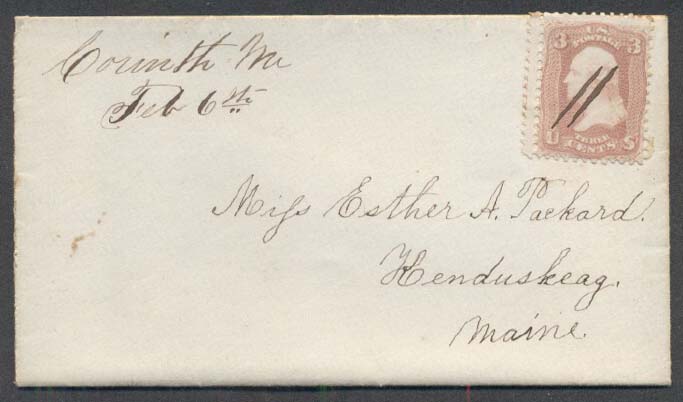 Corinth Me
Feb 6th
3 U.S. POSTAGE 3
U THREE CENTS S
Miss Esther A. Packard.
Kenduskeag.
Maine.